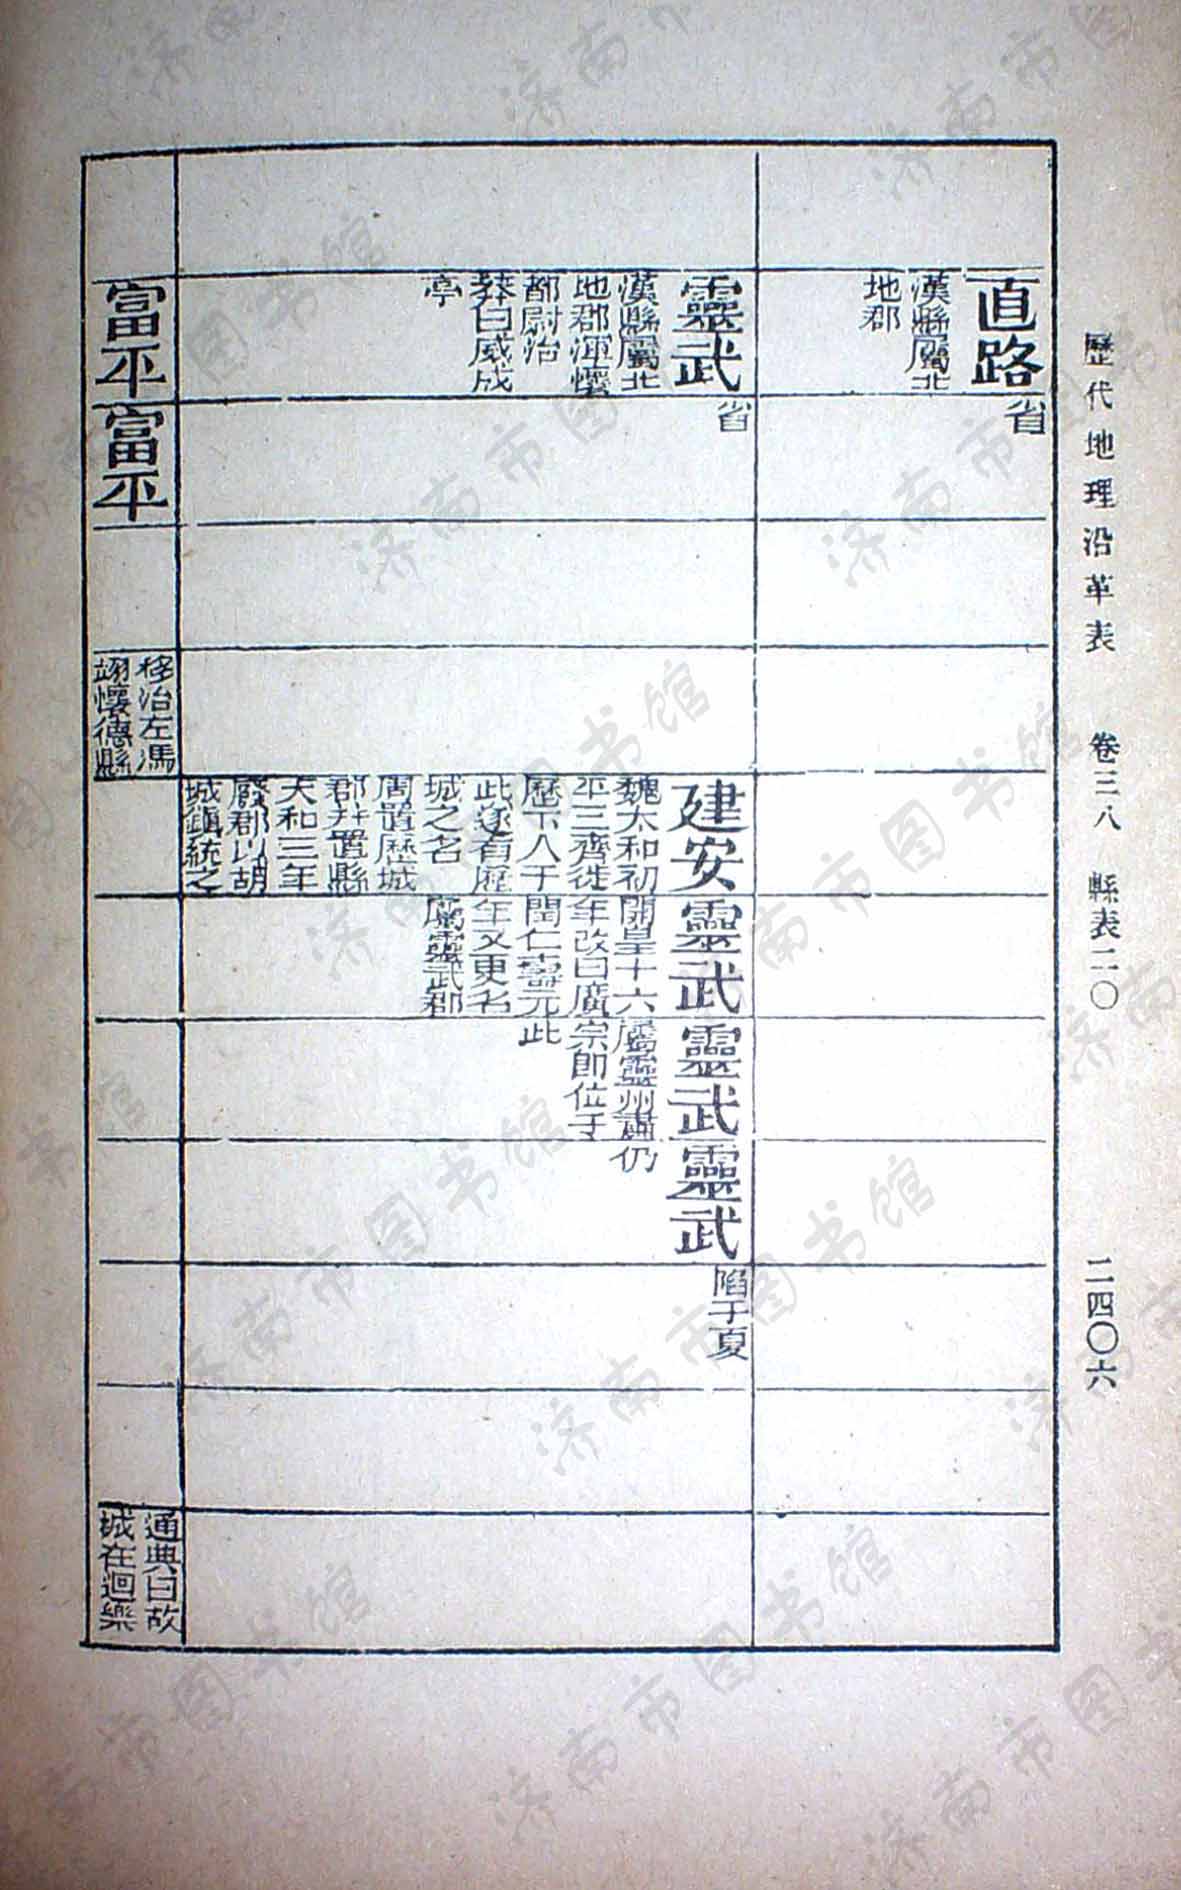 歷代地理沿革表 卷三八 縣表二〇 二四〇六
直路
漢縣屬北
地郡
省
靈武
漢縣屬北
地郡渾懷
都尉治
莽曰威成
亭
省
建安
魏太和初
平三齊徙
歷下人于
此遂有歷
城之名
周置歷城
郡并置縣
天和三年
廢郡以胡
城鎮統之
靈武
開皇十六
年改曰廣
閏仁壽元
年又更名
屬靈武郡
靈武
屬靈州肅
宗即位于
此
靈武
仍
陷于夏
富平
富平
移治左馮
翊懷德縣
通典曰故
城在迴樂
济南市图书馆